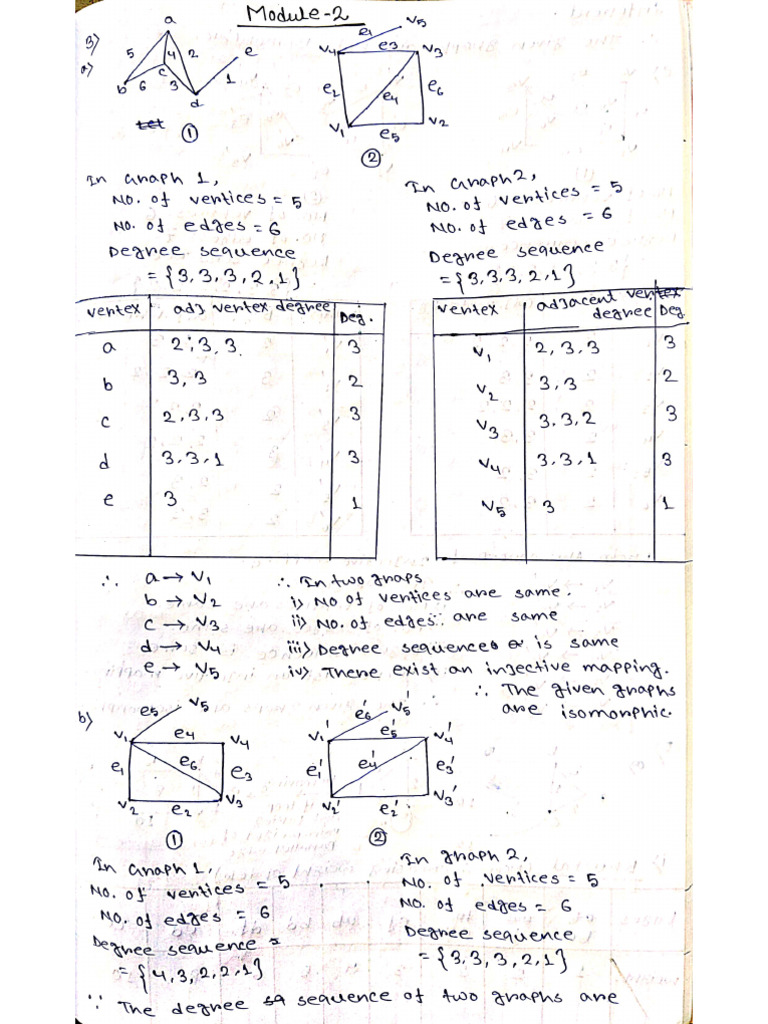 Module-2
3)
a)
a
5
4
2
e
c
b
6
3
1
d
①
e1
v5
v4
e3
v3
e2
e4
e6
v1
e5
v2
②
In Graph 1,
No. of vertices = 5
No. of edges = 6
Degree sequence
= {3, 3, 3, 2, 1}
In Graph 2,
No. of vertices = 5
No. of edges = 6
Degree sequence
= {3, 3, 3, 2, 1}
vertex adj vertex degree Deg.
a 2, 3, 3 3
b 3, 3 2
c 2, 3, 3 3
d 3, 3, 1 3
e 3 1
vertex adjacent vertex degree Deg
v1 2, 3, 3 3
v2 3, 3 2
v3 3, 3, 2 3
v4 3, 3, 1 3
v5 3 1
∴ a → v1
b → v2
c → v3
d → v4
e → v5
∴ In two graps
i) No of vertices are same.
ii) No. of edges are same
iii) Degree sequence is same
iv) There exist an injective mapping.
∴ The given graphs
are isomorphic.
b)
e5
v5
v1
e4
v4
e1
e6
e3
v2
e2
v3
①
e6'
v5'
v1'
e5'
v4'
e1'
e4'
e3'
v2'
e2'
v3'
②
In Graph 1,
No. of vertices = 5
No. of edges = 6
Degree sequence =
= {4, 3, 2, 2, 1}
In graph 2,
No. of vertices = 5
No. of edges = 6
Degree sequence
= {3, 3, 3, 2, 1}
∵ The degree sequence of two graphs are